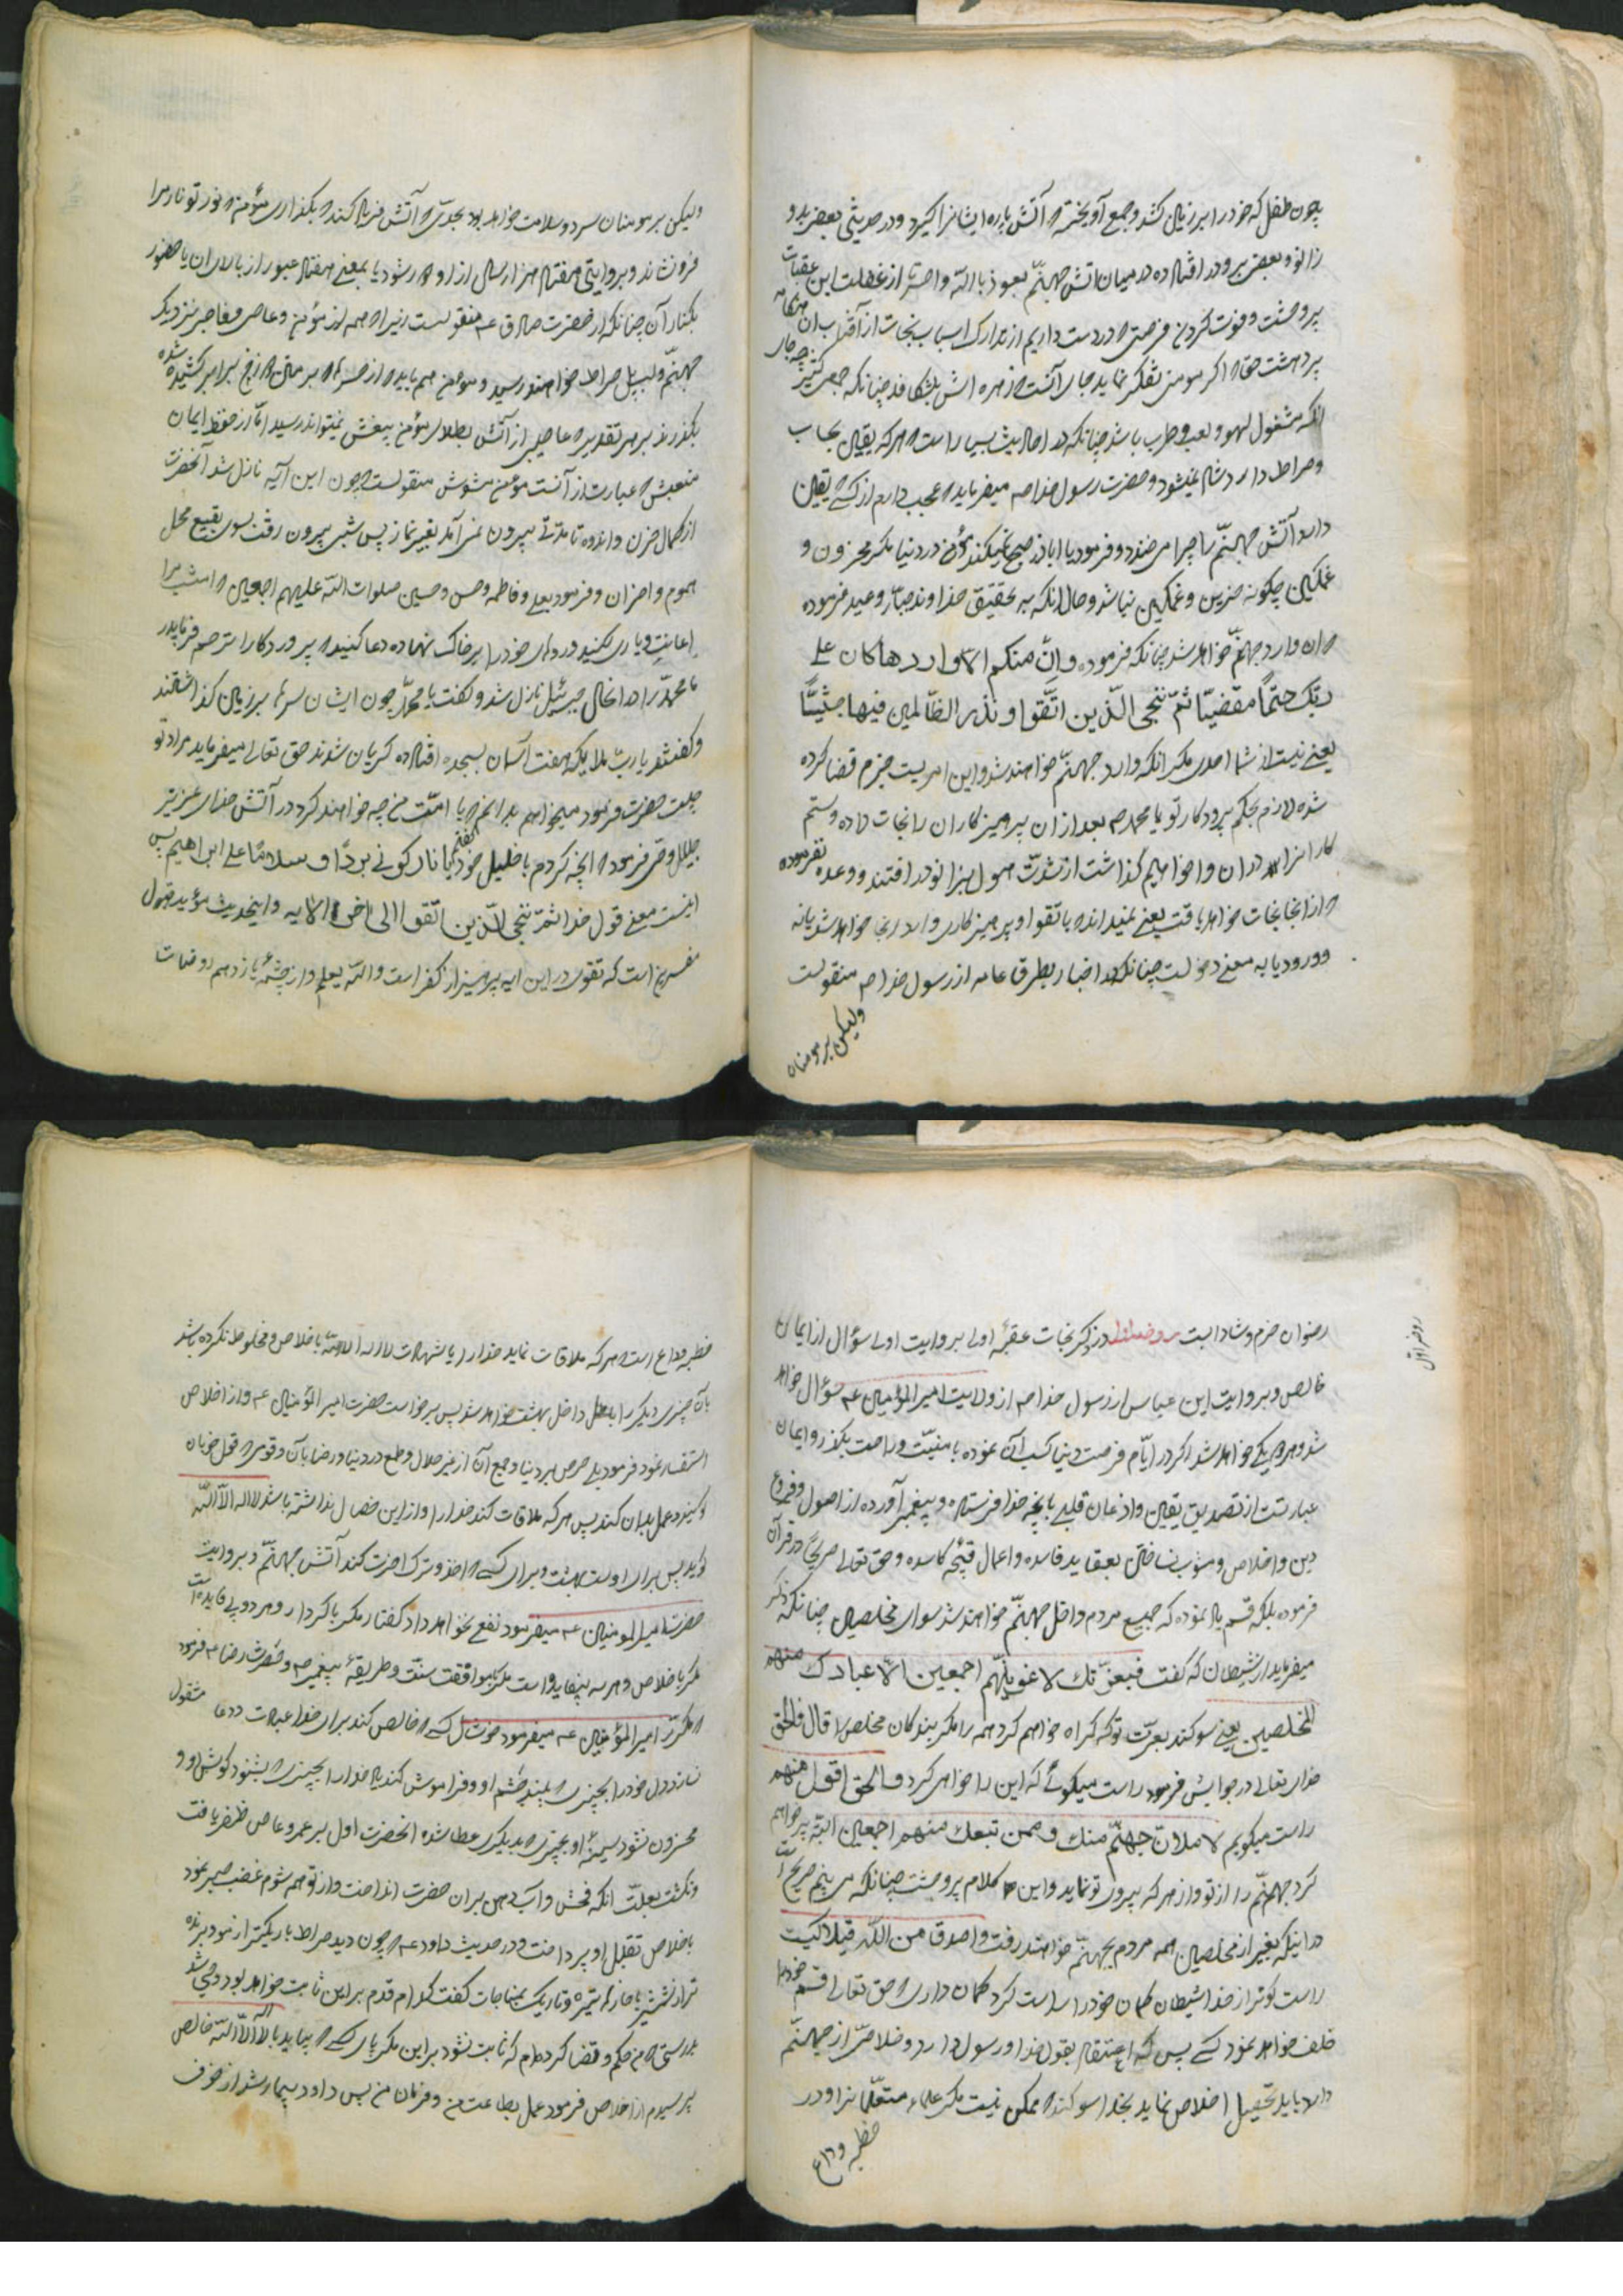 چون طفل که خود را بر زمین کشد و جمع آویخته که آتش پاره ایشانرا گیرد و در حدیثی بعضی بدو
زانو و بعضی برو در افتاده در میان آتش جهنّم نعوذ باللّه واحسرتا از غفلت این عقبات
پر وحشت و فوت کردن فرصتی که در دست داریم از تدارک اسباب نجات از آفتاب ان
پر دهشت حقا که اگر مومن تفکر نماید جای آنست که زهره اش بشکافد چنانکه جمعی کثیر
انکه مشغول لهو و لعب و طرب باشد چنانکه در احادیث بسیار است که هر که یقین بحساب
و صراط دارد شاد نمیشود و حضرت رسول خدا صم میفرماید که عجب دارم از کسی که یقین
دارد آتش جهنّم را چرا می خندد و فرمود یا اباذر صبح نمیکند مؤمن در دنیا مگر محزون و
غمگین چگونه حزین و غمگین نباشد و حال انکه به تحقیق خداوند جبّار وعید فرموده
که ان وارد جهنّم خواهد شد چنانکه فرموده وانّ منکم الا واردها کان علی
ربّک حتماً مقضیّا ثمّ ننجی الّذین اتّقوا و نذر الظّالمین فیها جثیّاً
یعنی نیست از شما احدی مگر انکه وارد جهنّم خواهند شد و این امریست جزم قضا کرده
شده لازم بحکم پروردکار تو یا محمد صم بعد از ان پرهیزکاران را نجات داده و ستم
کارانرا در ان وا خواهیم گذاشت از شدّت هول بزانو در افتند و وعده نفرموده
که از انجا نجات خواهد یافت یعنی نمیداند که با تقوا و پرهیزکاری وارد انجا خواهد شد یا نه
و ورود یا به معنی دخولست چنانکه در اخبار بطرق عامه از رسول خدا صم منقولست
ولیکن بر مومنان
ولیکن بر مومنان سرد و سلامت خواهد بود بحدّی که آتش فریاد کند که بگذار ای مؤمن که نور تو نار مرا
فرو نشاند و بروایتی هفتاد هزار سال از او دور شود یا بمعنی هفتاد عبور از بالای ان یا حضور
بکنار آن چنانکه از حضرت صادق عم منقولست زیرا که همه از مؤمن و عاصی و فاجر بنزدیک
جهنّم و لب پل صراط خواهند رسید و مومن هم باید که از صراط که بر متن دوزخ برابر کشیده شده
بگذرند بر هر تقدیر که عاصی از آتش بطلای مؤمن بی غش نمیتواند رسید امّا از حفظ ایمان
منقولست چون این آیه نازل شد آنحضرت
از کمال حزن و اندوه تا مدّتی بیرون نمی آمد بغیر نماز پس شبی بیرون رفت بسوی بقیع محل
هموم و احزان و فرمود بعلی و فاطمه و حسن و حسین صلوات اللّه علیهم اجمعین که امشب مرا
اعانت و یاری بکنید و روهای خود را بر خاک نهاده دعا کنید که پروردکارا ترحم فرما بر
ما محمّد را در انحال جبرئیل نازل شد و گفت یا محمّد چون ایشان سرها بر زمین گذاشتند
و گفتند یا ربّ ملایکه هفت آسمان بسجده افتاده گریان شدند حق تعالی میفرماید مراد تو
چیست حضرت فرمود میخواهم بدانم که با امّت من چه خواهند کرد در آتش خدای عزیز
جلیل وحی فرمود که انچه کردم با خلیل خود گفتم یا نار کونی برداً و سلاماً علی ابراهیم پس
اینست معنی قول خدا ثمّ ننجی الّذین اتّقوا الی اخر الایه و اینحدیث مؤید قول
مفسرین است که تقوی در این ایه پرهیز از کفر است و اللّه یعلم و از چشمهٔ یازدهم روضات
رضوان خرم و شادابست روضه اول در ذکر نجات عقبهٔ اولی بروایت اولی سؤال از ایمان
روضه اول
خالص و بروایت ابن عباس از رسول خدا صم از ولایت امیر المؤمنین عم سؤال خواهد
شد و هر دو یکی خواهد شد اگر در ایّام فرصت دنیا کسب آن نموده با منیّت و راحت بگذرد و ایمان
عبارتست از تصدیق یقین و اذعان قلبی بانچه خدا فرستاده و پیغمبر آورده از اصول و فروع
دین و اخلاص و مشوب نساختن بعقاید فاسده و اعمال قبیحه کاسده و حق تعالی صریح در قرآن
فرموده بلکه قسم یاد نموده که جمیع مردم داخل جهنّم خواهند شد سوای مخلصین چنانکه ذکر
میفرماید از شیطان که گفت فبعزّتک لاغوینّهم اجمعین الّا عبادک منهم
المخلصین یعنی سوکند بعزّت تو که گمراه خواهم کرد همه را مگر بندکان مخلص را قال فالحق
خدای تعالی در جوابش فرمود راست میکوئی که این را خواهی کرد والحق اقول منهم
راست میکویم لاملانّ جهنّم منک و ممن تبعک منهم اجمعین البتّه پر خواهم
کرد جهنّم را از تو و از هر که پیروی تو نماید و این کلام پر وحشت چنانکه می بینم صریح است
در اینکه بغیر از مخلصین همه مردم بجهنّم خواهند رفت و اصدق من اللّه قیلا کیست
راست گوتر از خدا شیطان گمان خود را راست کرد گمان داری که حق تعالی قسم خود را
خلف خواهد نمود کسی پس که اعتقاد بقول خدا و رسول دارد و خلاصی از جهنّم
دارد باید تحصیل اخلاص نماید بخدا سوکند که ممکن نیست مگر علماء متعلّما نرا و در
خطبه وداع
خطبه وداع است هر که ملاقات نماید خدا را با شهادت لا اله الا اللّه باخلاص و مخلوط نکرده باشد
بان چیزی دیگر را داخل بهشت خواهد شد پس برخواست حضرت امیر المؤمنین عم و از اخلاص
استفسار نمود فرمود بلی حرص بر دنیا و جمع آن از غیر حلال و طمع در دنیا و رضا بآن و قومی که قول خوبان
گویند و عمل بدان کنند پس هر که ملاقات کند خدا را و از این خصال نداشته باشد لا اله الّا اللّه
گوید پس برای اوست بهشت و برای کسی که اخذ و ترک اخرت کند آتش جهنّم و بروایت
حضرت امیر المومنین عم میفرمود نفع نخواهد داد گفتار مگر با کردار و هر دو بی فایده است
مگر با خلاص و هر سه بیفایده است مگر با موافقت سنّت و طریقهٔ پیغمبر صم و حضرت رضا عم فرمود
که مکرّر امیر المؤمنین عم میفرمود خوشا حال کسی که خالص کند برای خدا عبادت و دعا مشغول
نسازد دل خود را بچیزی که بیند چشم او و فراموش کند یاد خدا را بچیزی که بشنود کوش او و
محزون نشود سینهٔ او بچیزی که بدیگری عطا شده انحضرت اول بر عمرو عاص ظفر یافت
و نکشت بعلّت انکه فحش و آب دهن بران حضرت انداخت و ازو هم شوم غضب صبر نمود
باخلاص تقتل او پرداخت و در حدیث داود عم که چون دید صراط باریکتر از مو و برنده
تر از شمشیر با خارهای تیز و تاریک بمناجات گفت کدام قدم بر این ثابت خواهد بود وحی شد
بدرستی که من حکم و قضا کرده ام که ثابت نشود بر این مگر پای کسی که بیاید با لا اله الّا اللّه خالص
پرسیدم از اخلاص فرمود عمل بطاعت من و فرمان من پس داود بیمار شد از خوف